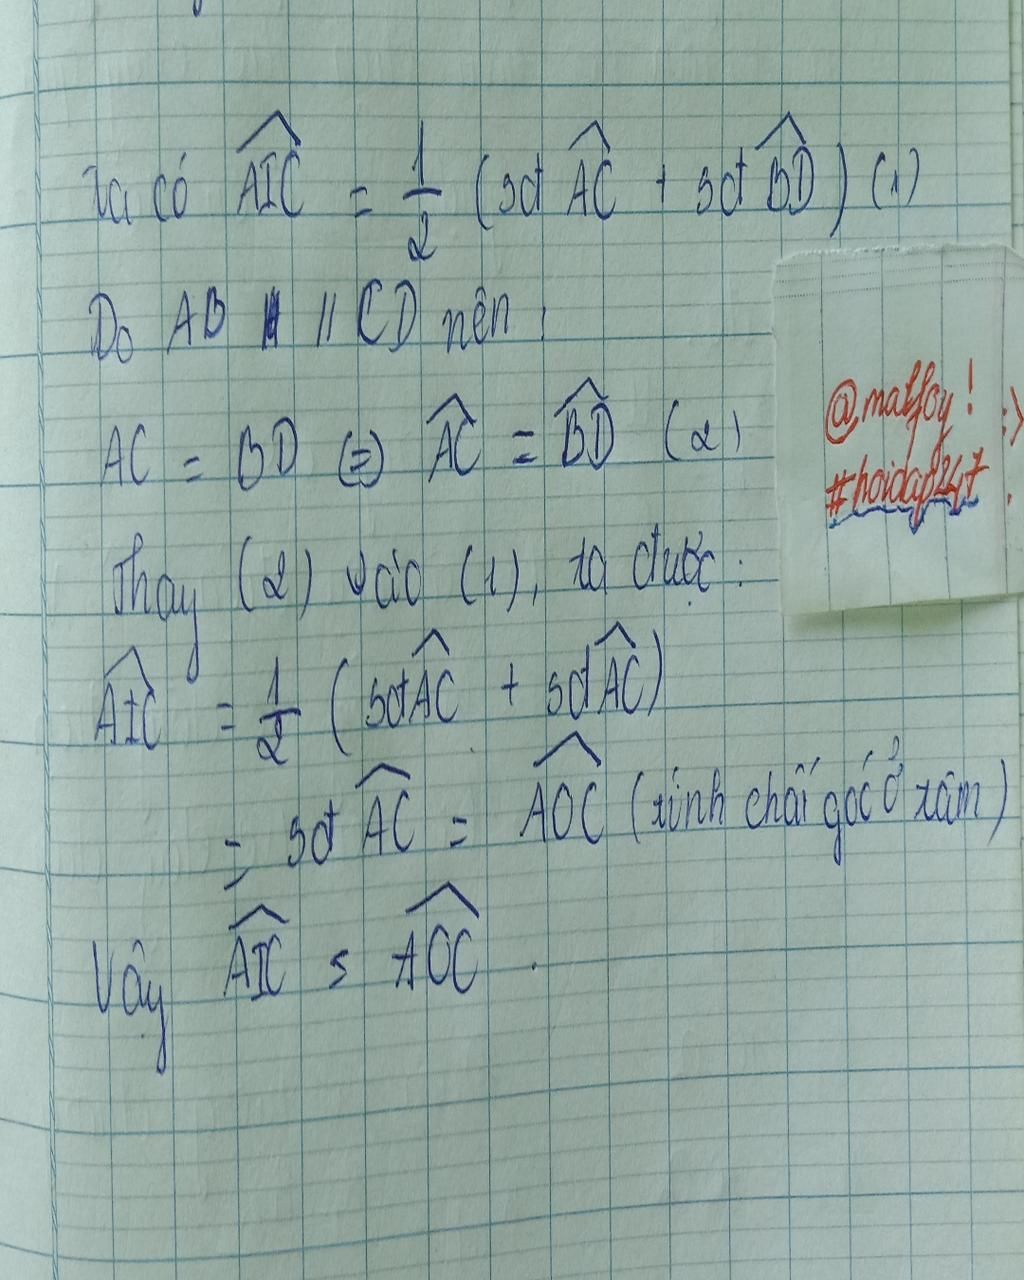 Ta có AIC = 1/2 (sđ AC + sđ BD) (1)
Do AB // CD nên:
AC = BD (=) AC = BD (2)
Thay (2) vào (1), ta được:
AIC = 1/2 (sđ AC + sđ AC)
= sđ AC = AOC (tính chất góc ở tâm)
Vậy AIC = AOC.
@malfoy! :)
#hoidap247.